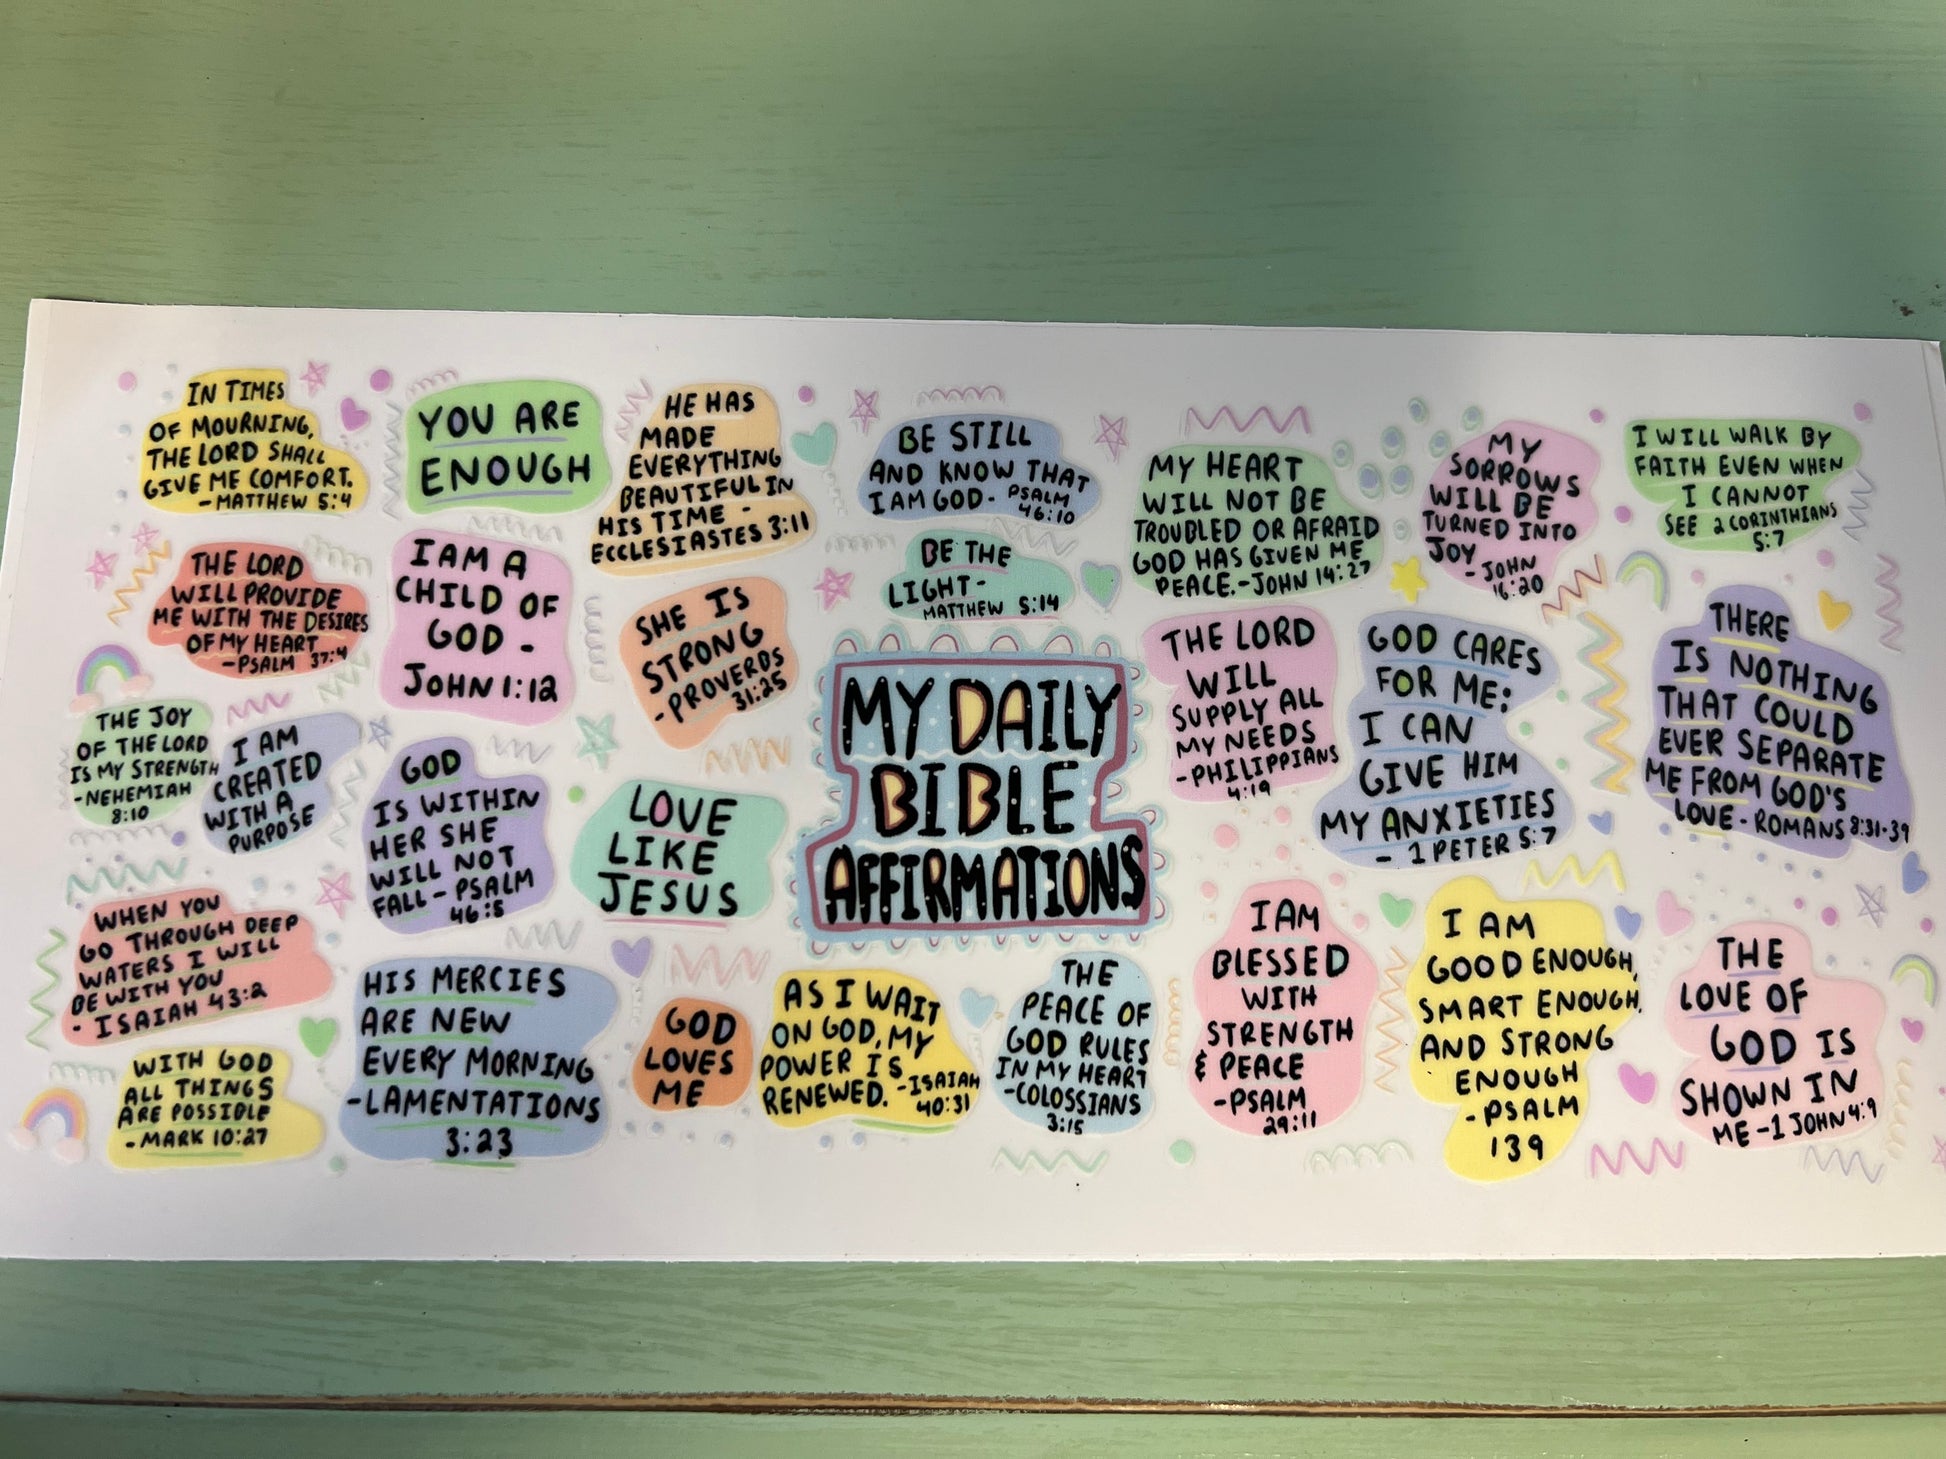 IN TIMES
OF MOURNING,
THE LORD SHALL
GIVE ME COMFORT.
-MATTHEW 5:4
YOU ARE
ENOUGH
HE HAS
MADE
EVERYTHING
BEAUTIFUL IN
HIS TIME -
ECCLESIASTES 3:11
BE STILL
AND KNOW THAT
I AM GOD - PSALM
46:10
MY HEART
WILL NOT BE
TROUBLED OR AFRAID
GOD HAS GIVEN ME
PEACE. - JOHN 14:27
MY
SORROWS
WILL BE
TURNED INTO
JOY
- JOHN
16:20
I WILL WALK BY
FAITH EVEN WHEN
I CANNOT
SEE 2 CORINTHIANS
5:7
THE LORD
WILL PROVIDE
ME WITH THE DESIRES
OF MY HEART
-PSALM 37:4
I AM A
CHILD OF
GOD -
JOHN 1:12
SHE IS
STRONG
- PROVERDS
31:25
BE THE
LIGHT -
MATTHEW 5:14
MY DAILY
BIBLE
AFFIRMATIONS
THE LORD
WILL
SUPPLY ALL
MY NEEDS
-PHILIPPIANS
4:19
GOD CARES
FOR ME:
I CAN
GIVE HIM
MY ANXIETIES
- 1 PETER 5:7
THERE
IS NOTHING
THAT COULD
EVER SEPARATE
ME FROM GOD'S
LOVE - ROMANS 8:31-39
THE JOY
OF THE LORD
IS MY STRENGTH
-NEHEMIAH
8:10
I AM
CREATED
WITH A
PURPOSE
GOD
IS WITHIN
HER SHE
WILL NOT
FALL - PSALM
46:5
LOVE
LIKE
JESUS
WHEN YOU
GO THROUGH DEEP
WATERS I WILL
BE WITH YOU
- ISAIAH 43:2
WITH GOD
ALL THINGS
ARE POSSIBLE
- MARK 10:27
HIS MERCIES
ARE NEW
EVERY MORNING
-LAMENTATIONS
3:23
GOD
LOVES
ME
AS I WAIT
ON GOD, MY
POWER IS
RENEWED. -ISAIAH
40:31
THE
PEACE OF
GOD RULES
IN MY HEART
-COLOSSIANS
3:15
I AM
BLESSED
WITH
STRENGTH
& PEACE
-PSALM
29:11
I AM
GOOD ENOUGH,
SMART ENOUGH,
AND STRONG
ENOUGH
- PSALM
139
THE
LOVE OF
GOD IS
SHOWN IN
ME - 1 JOHN 4:9